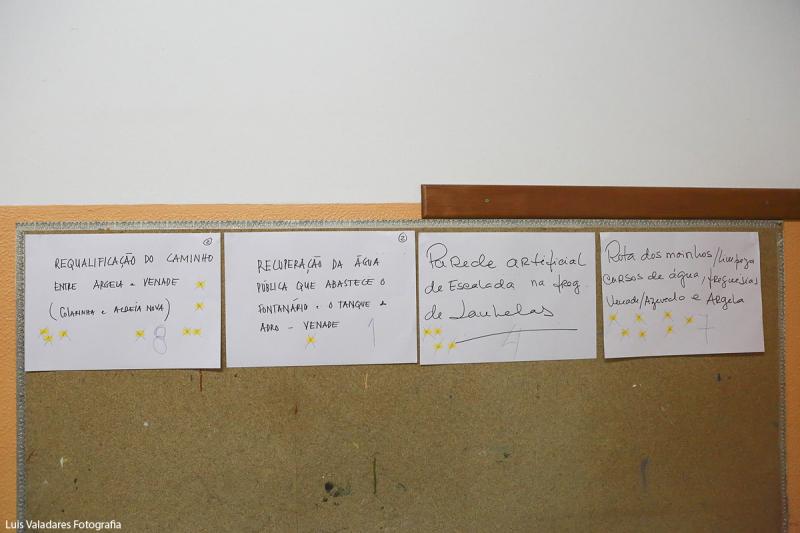 ②
REQUALIFICAÇÃO DO CAMINHO
ENTRE ARGELA e VENADE
(COLARINHA e ALDEIA NOVA)
8
②
RECUPERAÇÃO DA ÁGUA
PÚBLICA QUE ABASTECE O
FONTANÁRIO e O TANQUE e
ADRO - VENADE
1
Parede artificial
de Escalada na freg.
de Lanhelas
4
Rota dos moinhos/limpeza
cursos de água, freguesias
Venade/Azevedo e Argela
7
Luis Valadares Fotografia